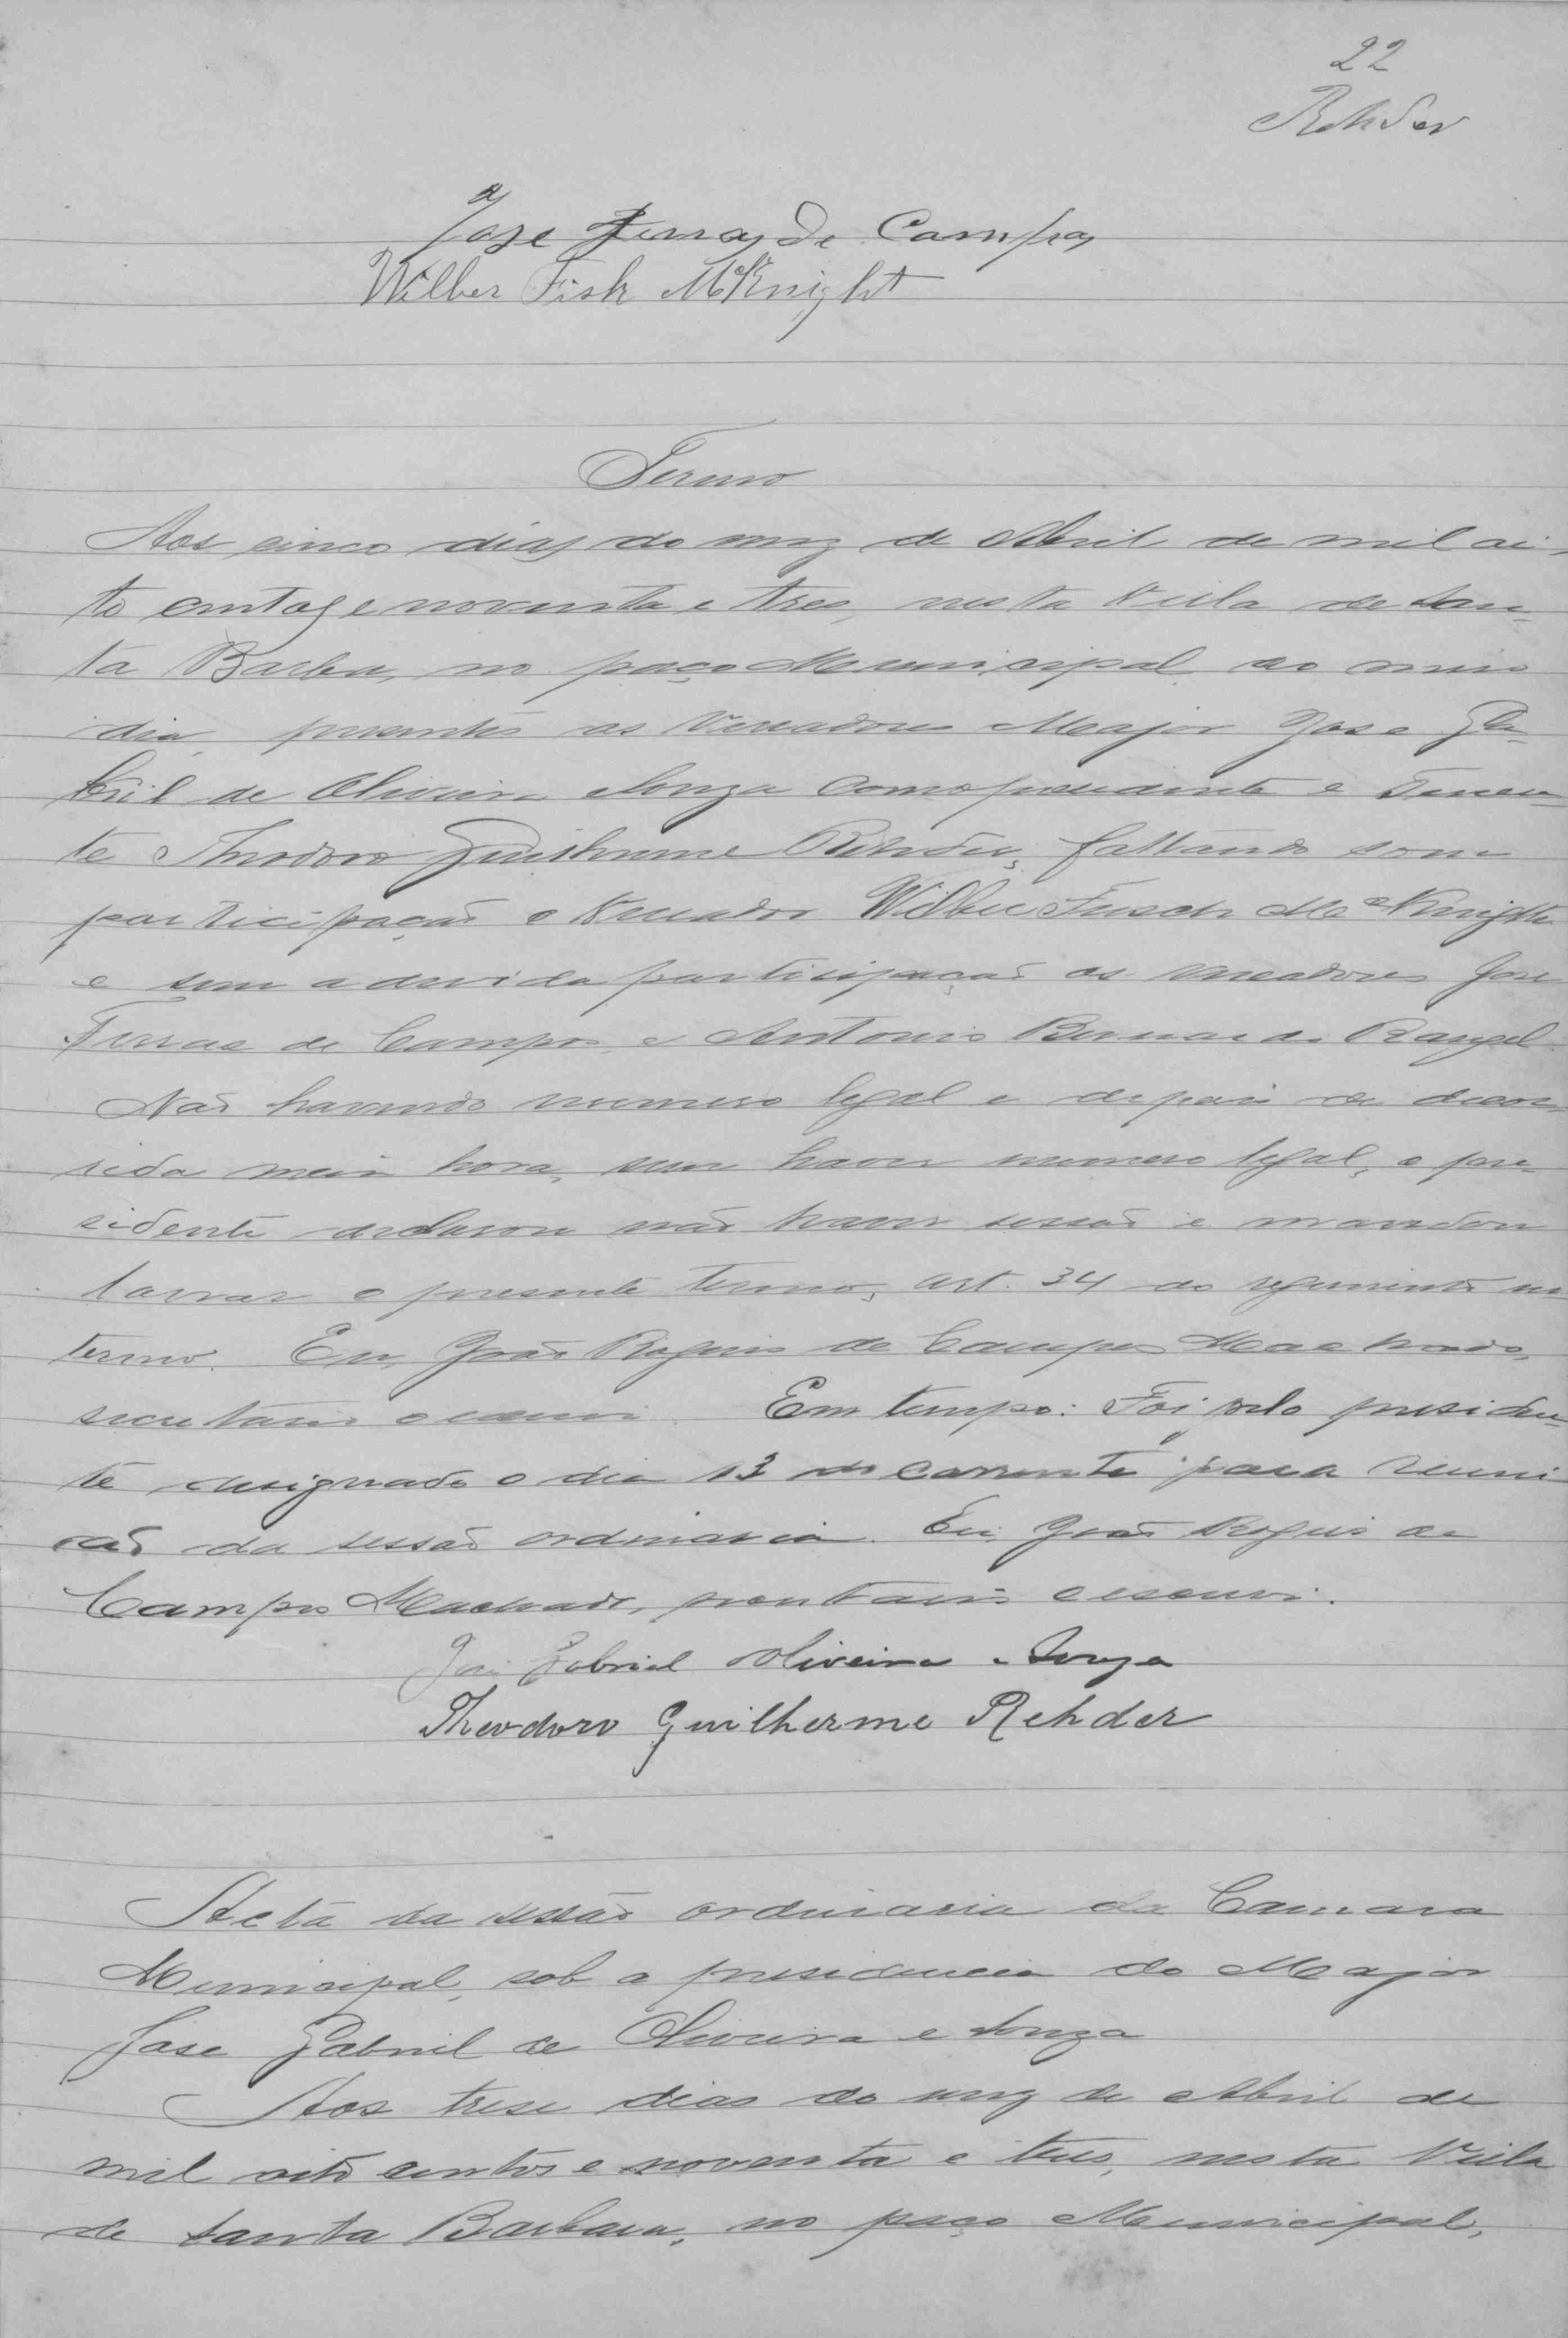 22
Rehder
Jose Ferraz de Campos
Wilber Fisk McKnight
Termo
Aos cinco dias do mez de Abril de mil oi-
to centos e noventa e tres, nesta Villa de San-
ta Barbara, no paço Municipal ao meio
dia, presentes os Vereadores Major Jose Ga-
briel de Oliveira e Souza como presidente e Tenen-
te Theodoro Guilherme Rehder, faltando com
participação o Vereador Wilber Fisch McKnight
e sem a devida participação os vereadores Jose
Ferraz de Campos e Antonio Bernardo Rangel
Não havendo numero legal e depois de decor-
rida meia hora, sem haver numero legal, o pre-
sidente declarou não haver sessão e mandou
lavrar o presente termo, art. 34 do regimento in-
terno. Eu, João de Campos Machado,
secretario o escrevi. Em tempo: Foi pelo presiden-
te designado o dia 13 do corrente para reuni-
ão da sessão ordinaria. Eu João de
Campos Machado, secretario o escrevi.
José Gabriel Oliveira e Souza
Theodoro Guilherme Rehder
Acta da sessão ordinaria da Camara
Municipal, sob a presidencia do Major
Jose Gabriel de Oliveira e Souza
Aos trese dias do mez de Abril de
mil oito centos e noventa e tres, nesta Villa
de Santa Barbara, no paço Municipal,